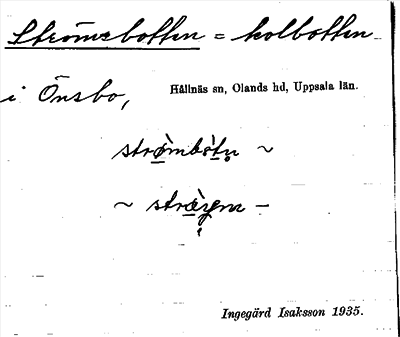 Strömsbotten = kolbotten
i Önsbo, Hållnäs sn, Olands hd, Uppsala län.
strò̱mbò̱tn̥ ~
~ 
Ingegärd Isaksson 1935.